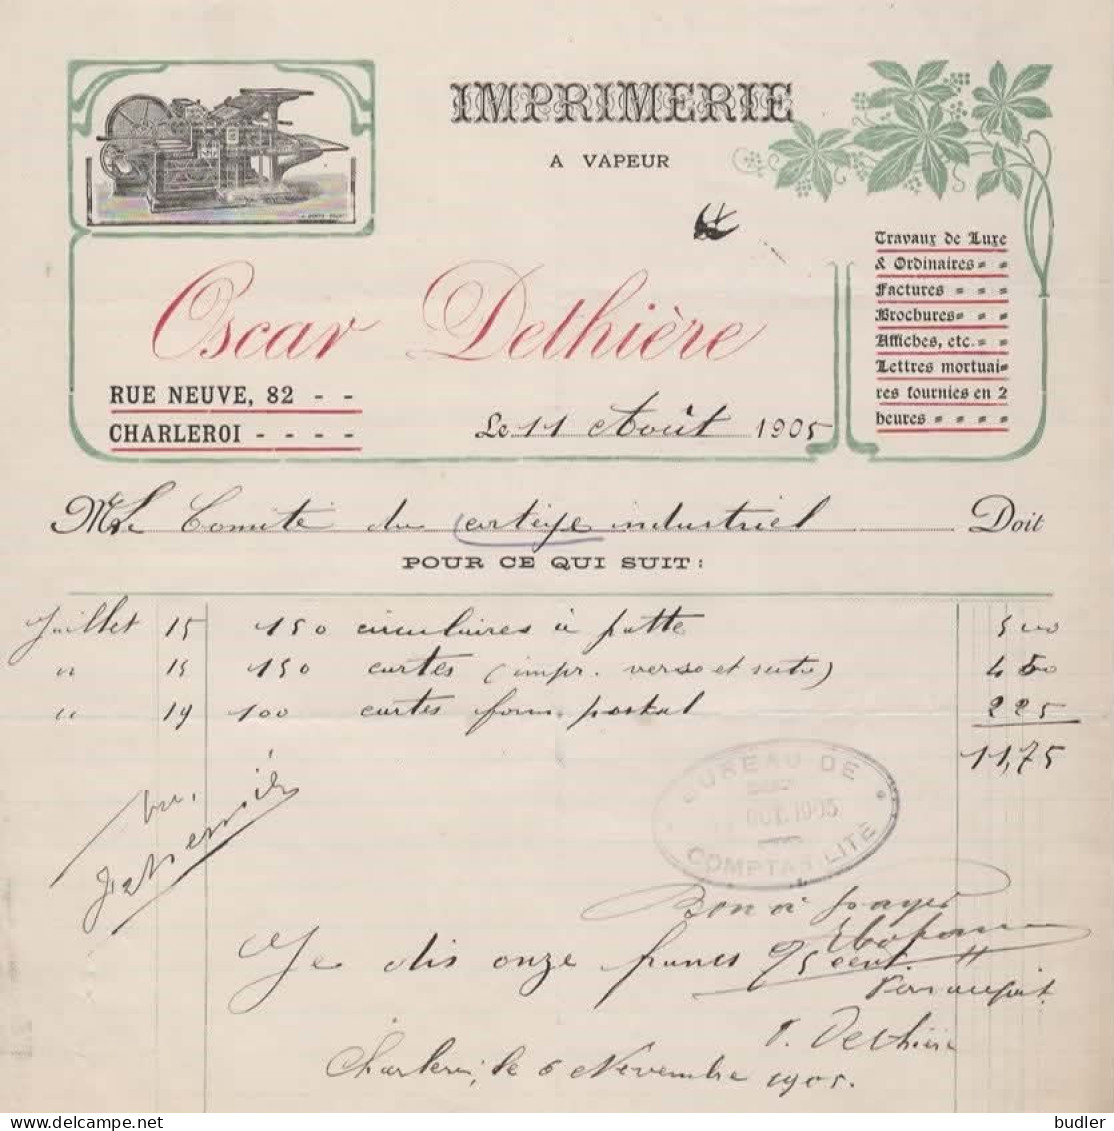 IMPRIMERIE
A VAPEUR
Oscar Dethière
RUE NEUVE, 82 - -
CHARLEROI - - - -
Travaux de Luxe
& Ordinaires
Factures
Brochures
Affiches, etc.
Lettres mortuai-
res fournies en 2
heures
Le 11 Août 1905
M Le Comité du cortège industriel Doit
POUR CE QUI SUIT:
Juillet 15 150 circulaires à patte 5 00
" 15 150 cartes (impr. verso et recto) 4 50
" 19 100 cartes form. postal 2 25
11,75
BUREAU DE
OCT. 1905
COMPTABILITÉ
Vu,
Bon à payer
Je dis onze francs 75 cent
Pour acquit
O. Dethière
Charleroi, le 6 Novembre 1905.
budler